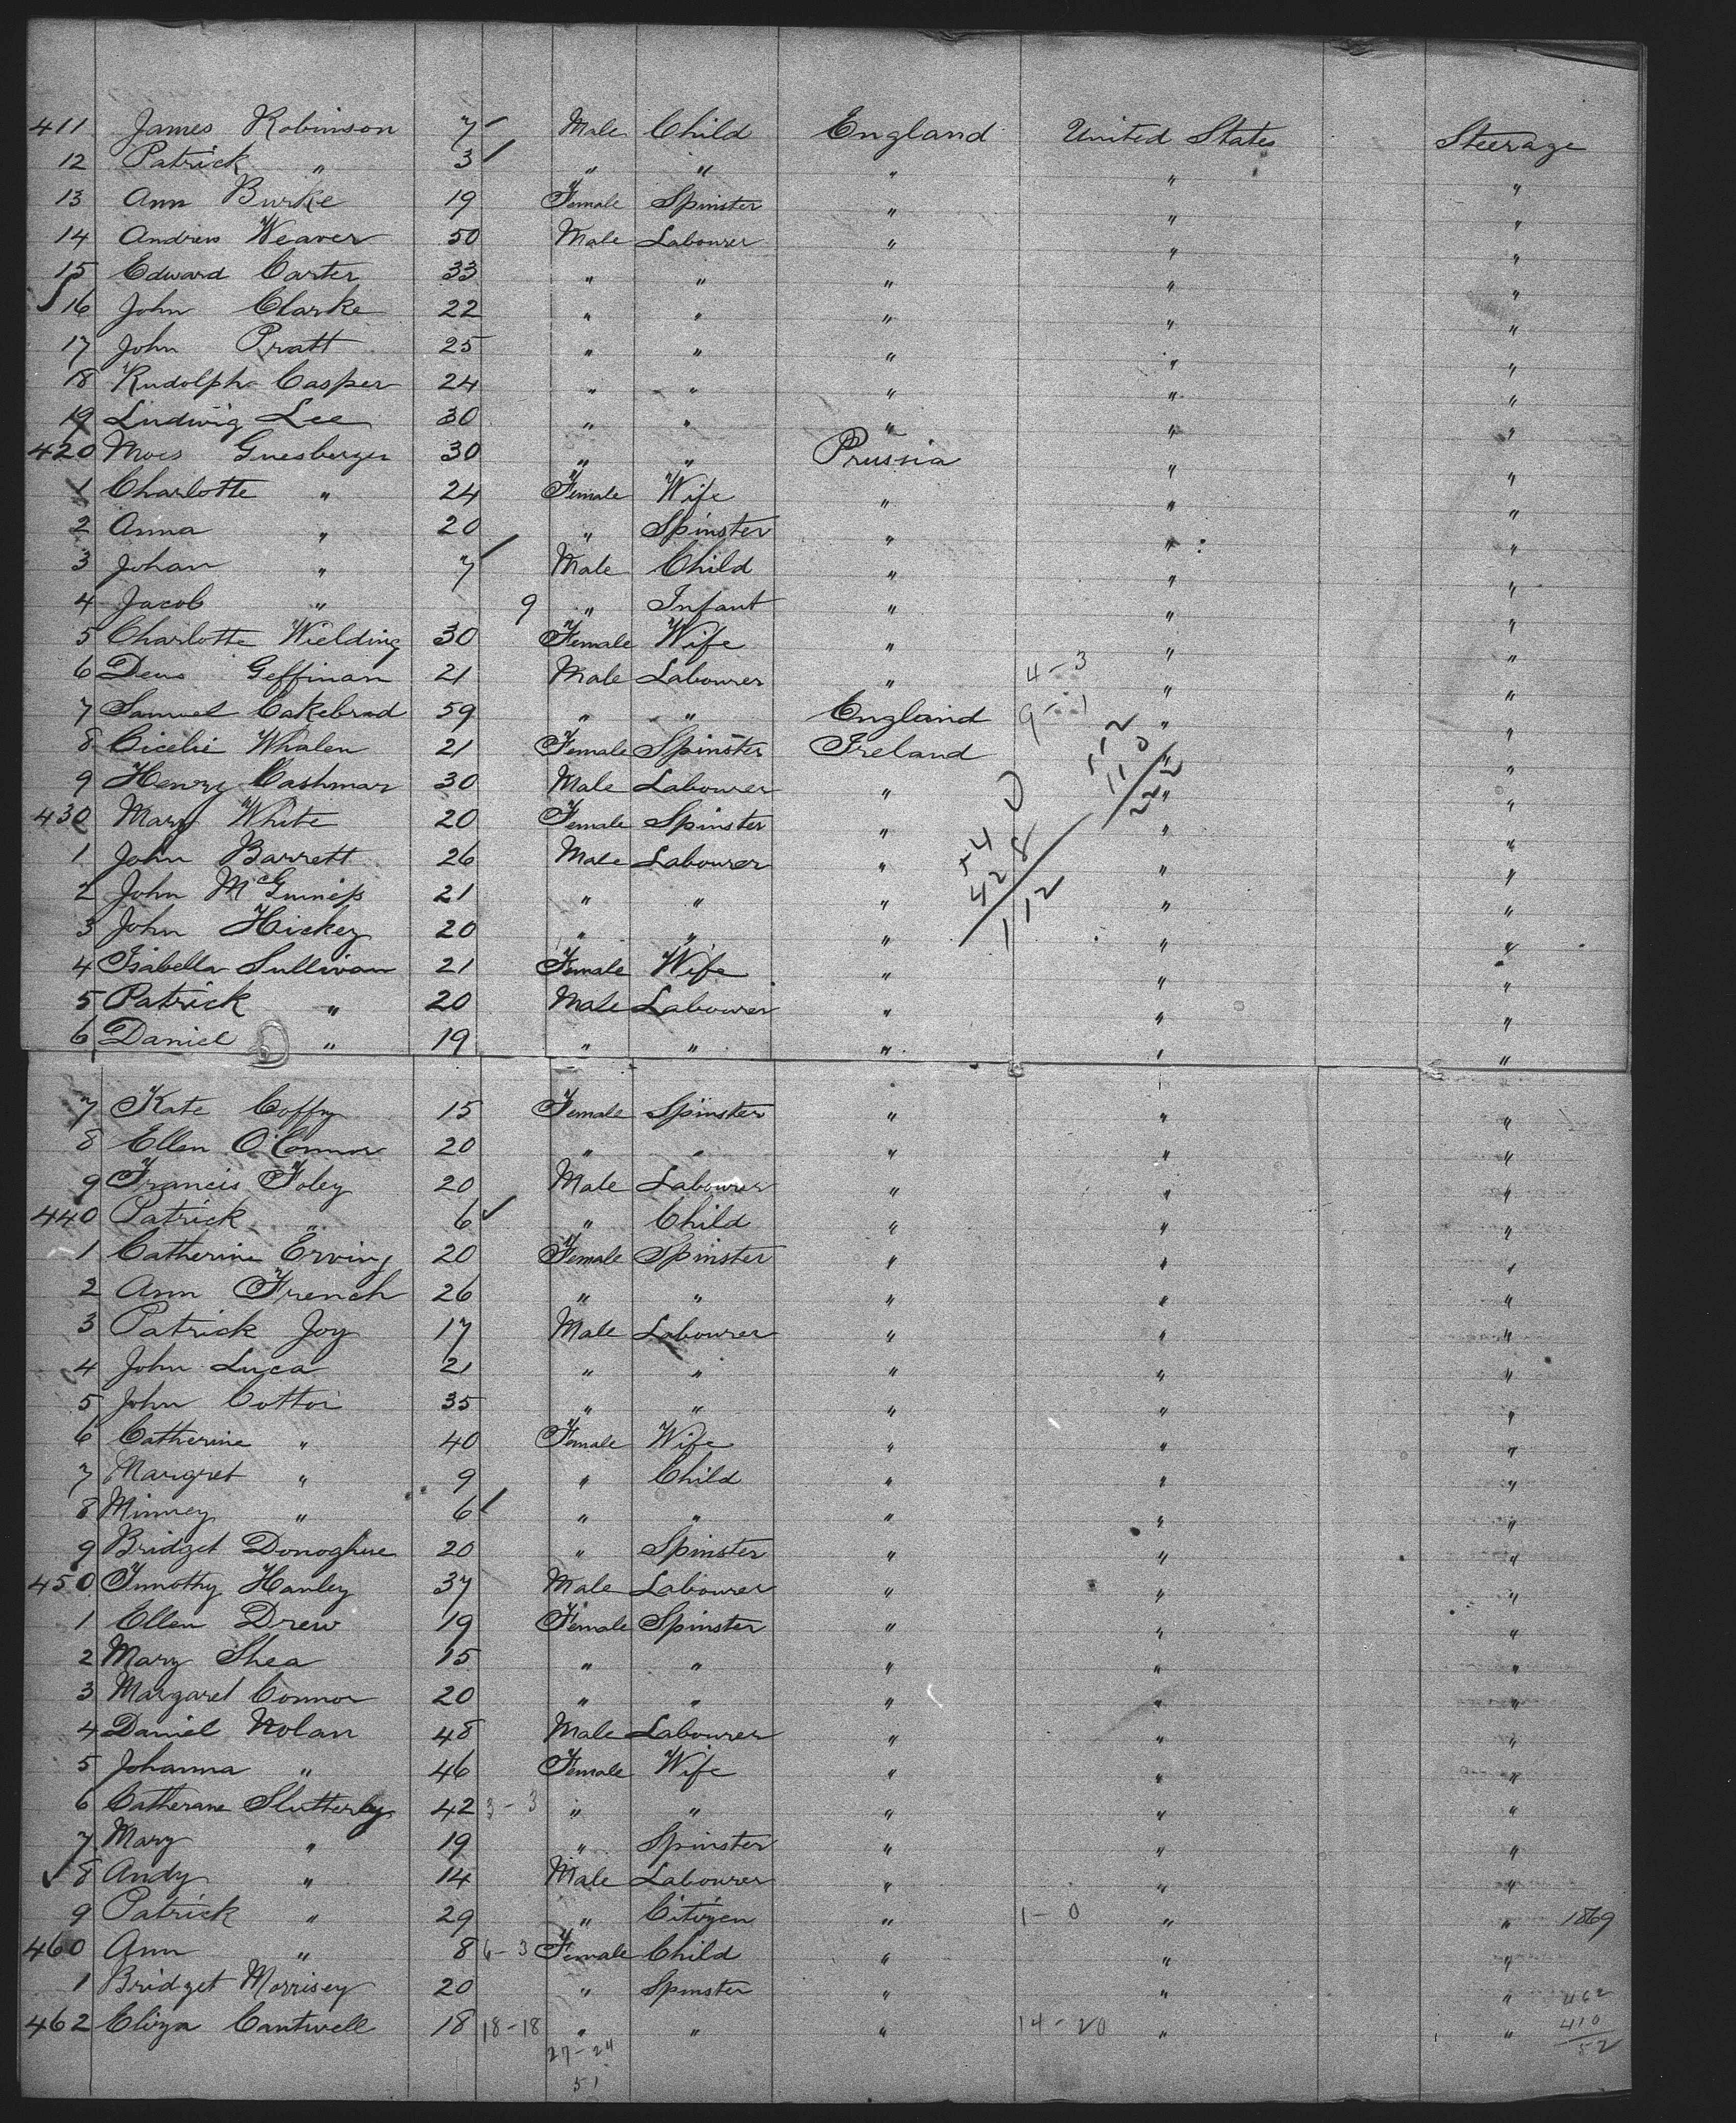 411 James Robinson 7 Male Child England United States Steerage
12 Patrick " 3 " " " " "
13 Ann Burke 19 Female Spinster " " "
14 Andrew Weaver 50 Male Labourer " " "
15 Edward Carter 33 " " " " "
16 John Clarke 22 " " " " "
17 John Pratt 25 " " " " "
18 Rudolph Casper 24 " " " " "
19 Ludwig Lee 30 " " " " "
420 Moes Gunesberger 30 " " Prussia " "
1 Charlotte " 24 Female Wife " " "
2 Anna " 20 " Spinster " " "
3 Johan " 7 Male Child " " "
4 Jacob " 9 " Infant " " "
5 Charlotte Wielding 30 Female Wife " " "
6 Geffinam 21 Male Labourer " 4-3 " "
7 Samuel Cakebrad 59 " " England 9-1 " "
8 Cicelie Whalen 21 Female Spinster Ireland " "
9 Henry Cashmar 30 Male Labourer " " "
430 Mary White 20 Female Spinster " " "
1 John Barrett 26 Male Labourer " " "
2 John McGuiness 21 " " " " "
3 John Hickey 20 " " " " "
4 Isabella Sullivan 21 Female Wife " " "
5 Patrick " 20 Male Labourer " " "
6 Daniel " 19 " " " " "
7 Kate Coffy 15 Female Spinster " " "
8 Ellen O'Connor 20 " " " " "
9 Francis Foley 20 Male Labourer " " "
440 Patrick " 6 " Child " " "
1 Catherine Erving 20 Female Spinster " " "
2 Ann French 26 " " " " "
3 Patrick Joy 17 Male Labourer " " "
4 John Luca 21 " " " " "
5 John Cottor 35 " " " " "
6 Catherine " 40 Female Wife " " "
7 Margret " 9 " Child " " "
8 Minney " 6 " " " " "
9 Bridget Donoghue 20 " Spinster " " "
450 Timothy Hanley 37 Male Labourer " " "
1 Ellen Drew 19 Female Spinster " " "
2 Mary Shea 15 " " " " "
3 Margaret Connor 20 " " " " "
4 Daniel Nolan 48 Male Labourer " " "
5 Johanna " 46 Female Wife " " "
6 Catherane Slutterby 42 3-3 " " " " "
7 Mary " 19 " Spinster " " "
8 Andy " 14 Male Labourer " " "
9 Patrick " 29 " Citizen " 1-0 " " 1869
460 Ann " 8 6-3 Female Child " " "
1 Bridget Morrisey 20 " Spinster " " " 462
462 Eliza Cantwell 18 18-18 " " " 14-20 " " 410
27-24 52
51